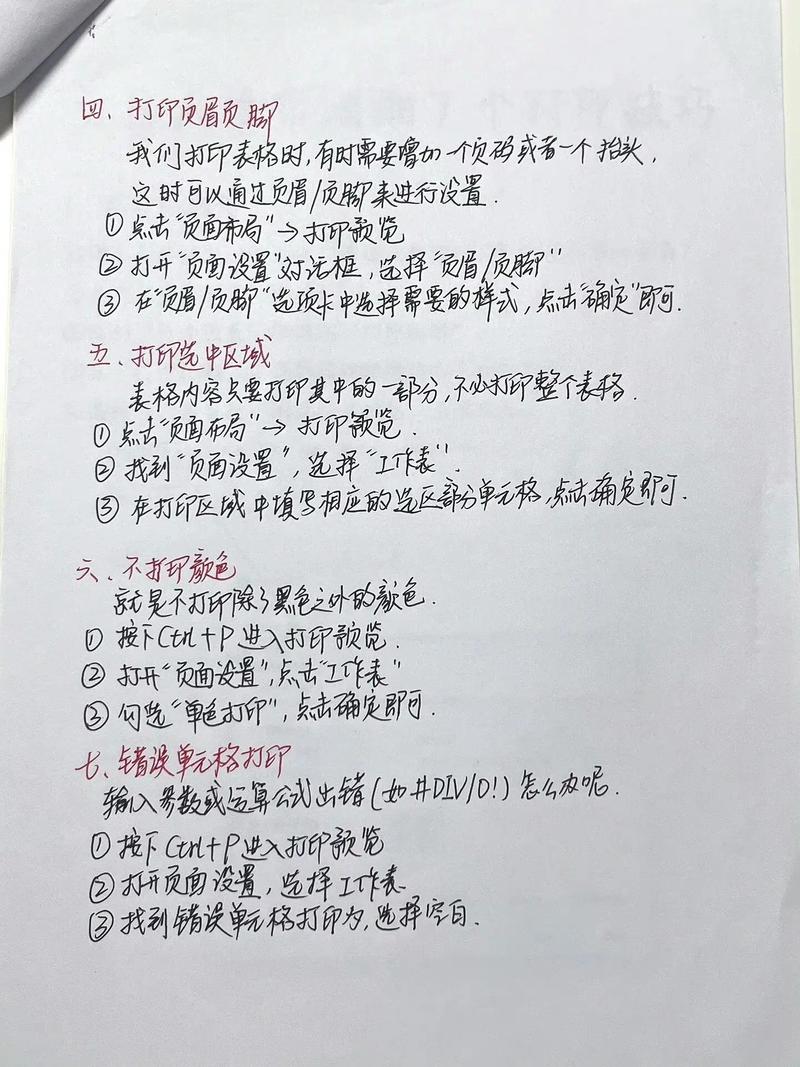 四、打印页眉页脚
我们打印表格时,有时需要增加一个页码或者一个抬头,
这时可以通过页眉/页脚来进行设置.
①点击"页面布局"→打印预览
②打开"页面设置"对话框,选择"页眉/页脚"
③在"页眉/页脚"选项卡中选择需要的样式,点击"确定"即可.
五、打印选中区域
表格内容只要打印其中的一部分,不必打印整个表格.
①点击"页面布局"→打印预览.
②找到"页面设置",选择"工作表".
③在打印区域中填写相应的选区部分单元格,点击确定即可.
六、不打印颜色
就是不打印除了黑色之外的颜色.
①按下Ctrl+P进入打印预览.
②打开"页面设置",点击"工作表"
③勾选"单色打印",点击确定即可.
七、错误单元格打印
输入参数或运算公式出错(如#DIV/0!)怎么办呢.
①按下Ctrl+P进入打印预览
②打开页面设置,选择工作表.
③找到错误单元格打印为,选择空白.